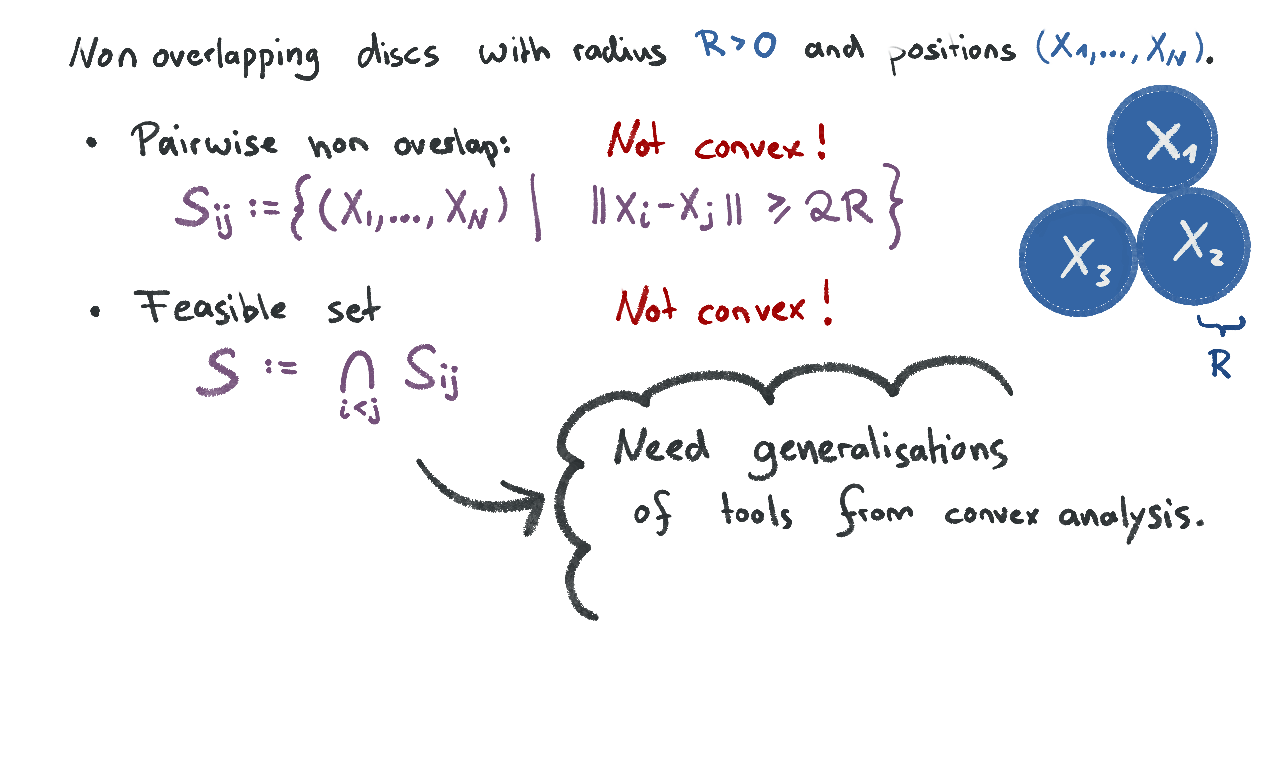 Non overlapping discs with radius R>0 and positions (X₁,..., X_N).
• Pairwise non overlap: Not convex!
S_ij := {(X₁,..., X_N) | ||X_i-X_j|| ≥ 2R}
X₁
X₃ X₂
R
• Feasible set Not convex!
S := ⋂_{i<j} S_ij
Need generalisations
of tools from convex analysis.